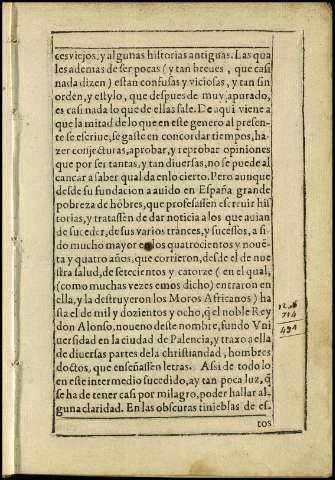 ces viejos, y algunas historias antiguas. Las qua
les ademas de ser pocas (y tan breues, que casi
nada dizen) estan confusas y viciosas, y tan sin
orden, y estylo, que despues de muy apurado,
es casi nada lo que de ellas sale. De aqui viene a
que la mitad de lo que en este genero al presen-
te se escriue, se gaste en concordar tiempos, ha-
zer conjecturas, aprobar, y reprobar opiniones
que por ser tantas, y tan diuersas, no se puede al
cançar a saber qual da en lo cierto. Pero aunque
desde su fundacion a auido en España grande
pobreza de hõbres, que professassen escreuir his
torias, y tratassen de dar noticia a los que auian
de suceder, de sus varios trances, y sucessos, a si-
do mucho mayor en los quatrocientos y nouẽ-
ta y quatro años, que corrieron, desde el de nue
stra salud, de setecientos y catorze (en el qual,
(como muchas vezes emos dicho) entraron en
ella, y la destruyeron los Moros Africanos) ha
sta el de mil y dozientos y ocho, q̃ el noble Rey
don Alonso, noueno deste nombre, fundo Vni
uersidad en la ciudad de Palencia, y traxo a ella
de diuersas partes de la christiandad, hombres
doctos, que enseñassen letras. Assi de todo lo
en este intermedio sucedido, ay tan poca luz, q̃
se ha de tener casi por milagro, poder hallar al-
guna claridad. En las obscuras tinieblas de es-
tos
714
494